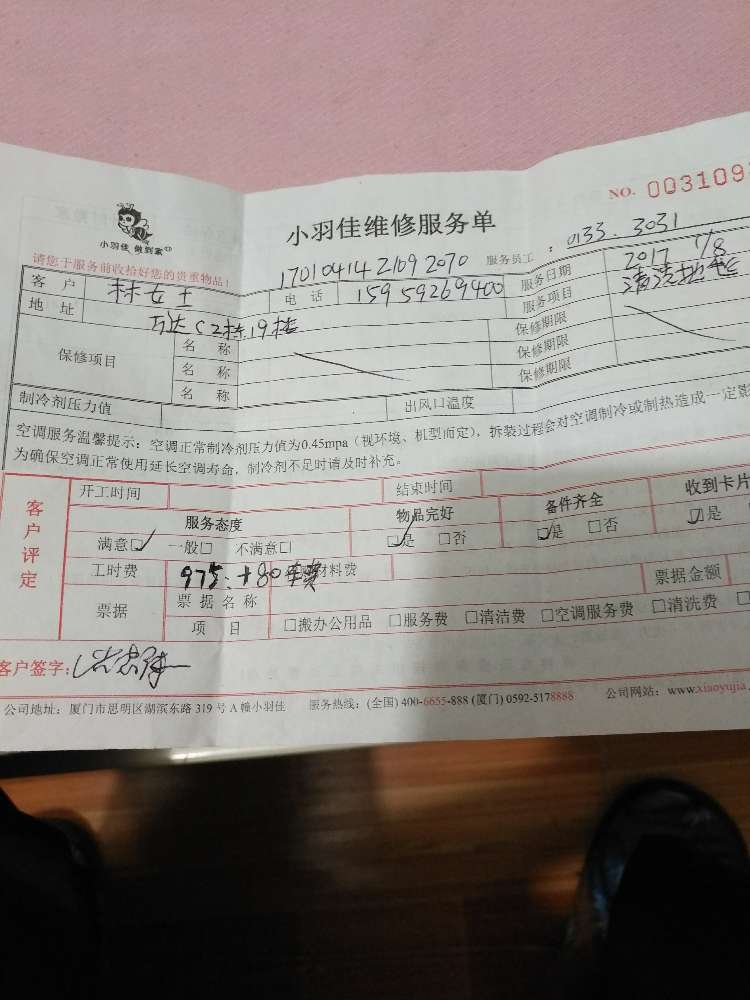 NO. 003109
小羽佳 做到家
小羽佳维修服务单
请您于服务前收拾好您的贵重物品！
1701041421092070
服务员工：0133.3031
客户 林女士
电话 15959269400
服务日期 2017 1/8
地址 万达C2栋19楼
服务项目 清洗地毯
保修项目
名称
保修期限
名称
保修期限
名称
保修期限
制冷剂压力值
出风口温度
空调服务温馨提示：空调正常制冷剂压力值为0.45mpa（视环境、机型而定），拆装过程会对空调制冷或制热造成一定影
为确保空调正常使用延长空调寿命，制冷剂不足时请及时补充。
客户评定
开工时间
结束时间
服务态度
物品完好
备件齐全
收到卡片
满意☑ 一般□ 不满意□
☑是 □否
☑是 □否
☑是
工时费 975.+80车费
材料费
票据
票据名称
票据金额
项目
□搬办公用品 □服务费 □清洁费 □空调服务费 □清洗费
客户签字：
公司地址：厦门市思明区湖滨东路 319 号 A 幢小羽佳 服务热线：(全国) 400-6655-888 (厦门) 0592-5178888 公司网站：www.xiaoyujia.